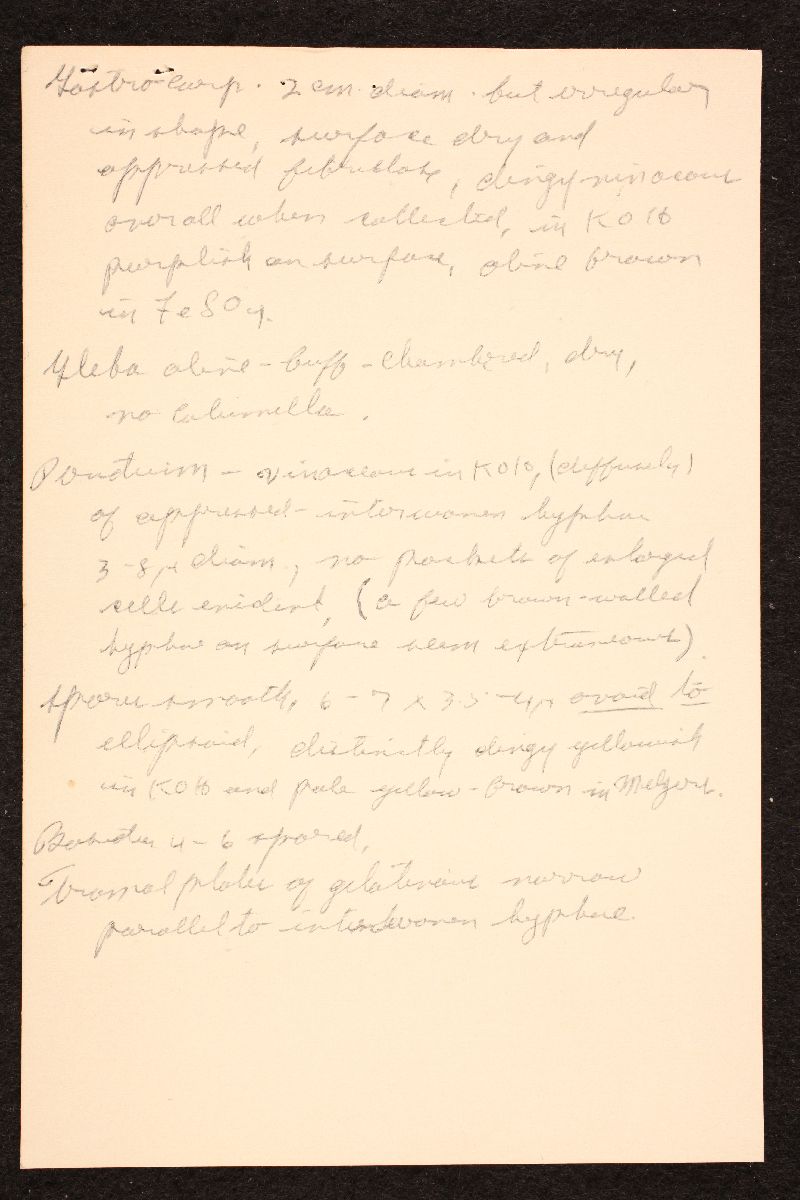 Gastrocarp. 2 cm. diam. but irregular
in shape, surface dry and
appressed fibrillose, dingy vinaceous
overall when collected, in KOH
purplish on surface, olive brown
in FeSO4.
Gleba olive-buff-chambered, dry,
no columella.
Peridium - vinaceous in KOH, (diffusely)
of appressed-interwoven hyphae
3-8µ diam., no pockets of enlarged
cells evident, (a few brown-walled
hyphae on surface seem extraneous).
Spores smooth, 6-7 x 3.5-4µ ovoid to
ellipsoid, distinctly dingy yellowish
in KOH and pale yellow-brown in Melzers.
Basidia 4-6 spored,
Tramal plates of gelatinous narrow
parallel to interwoven hyphae.